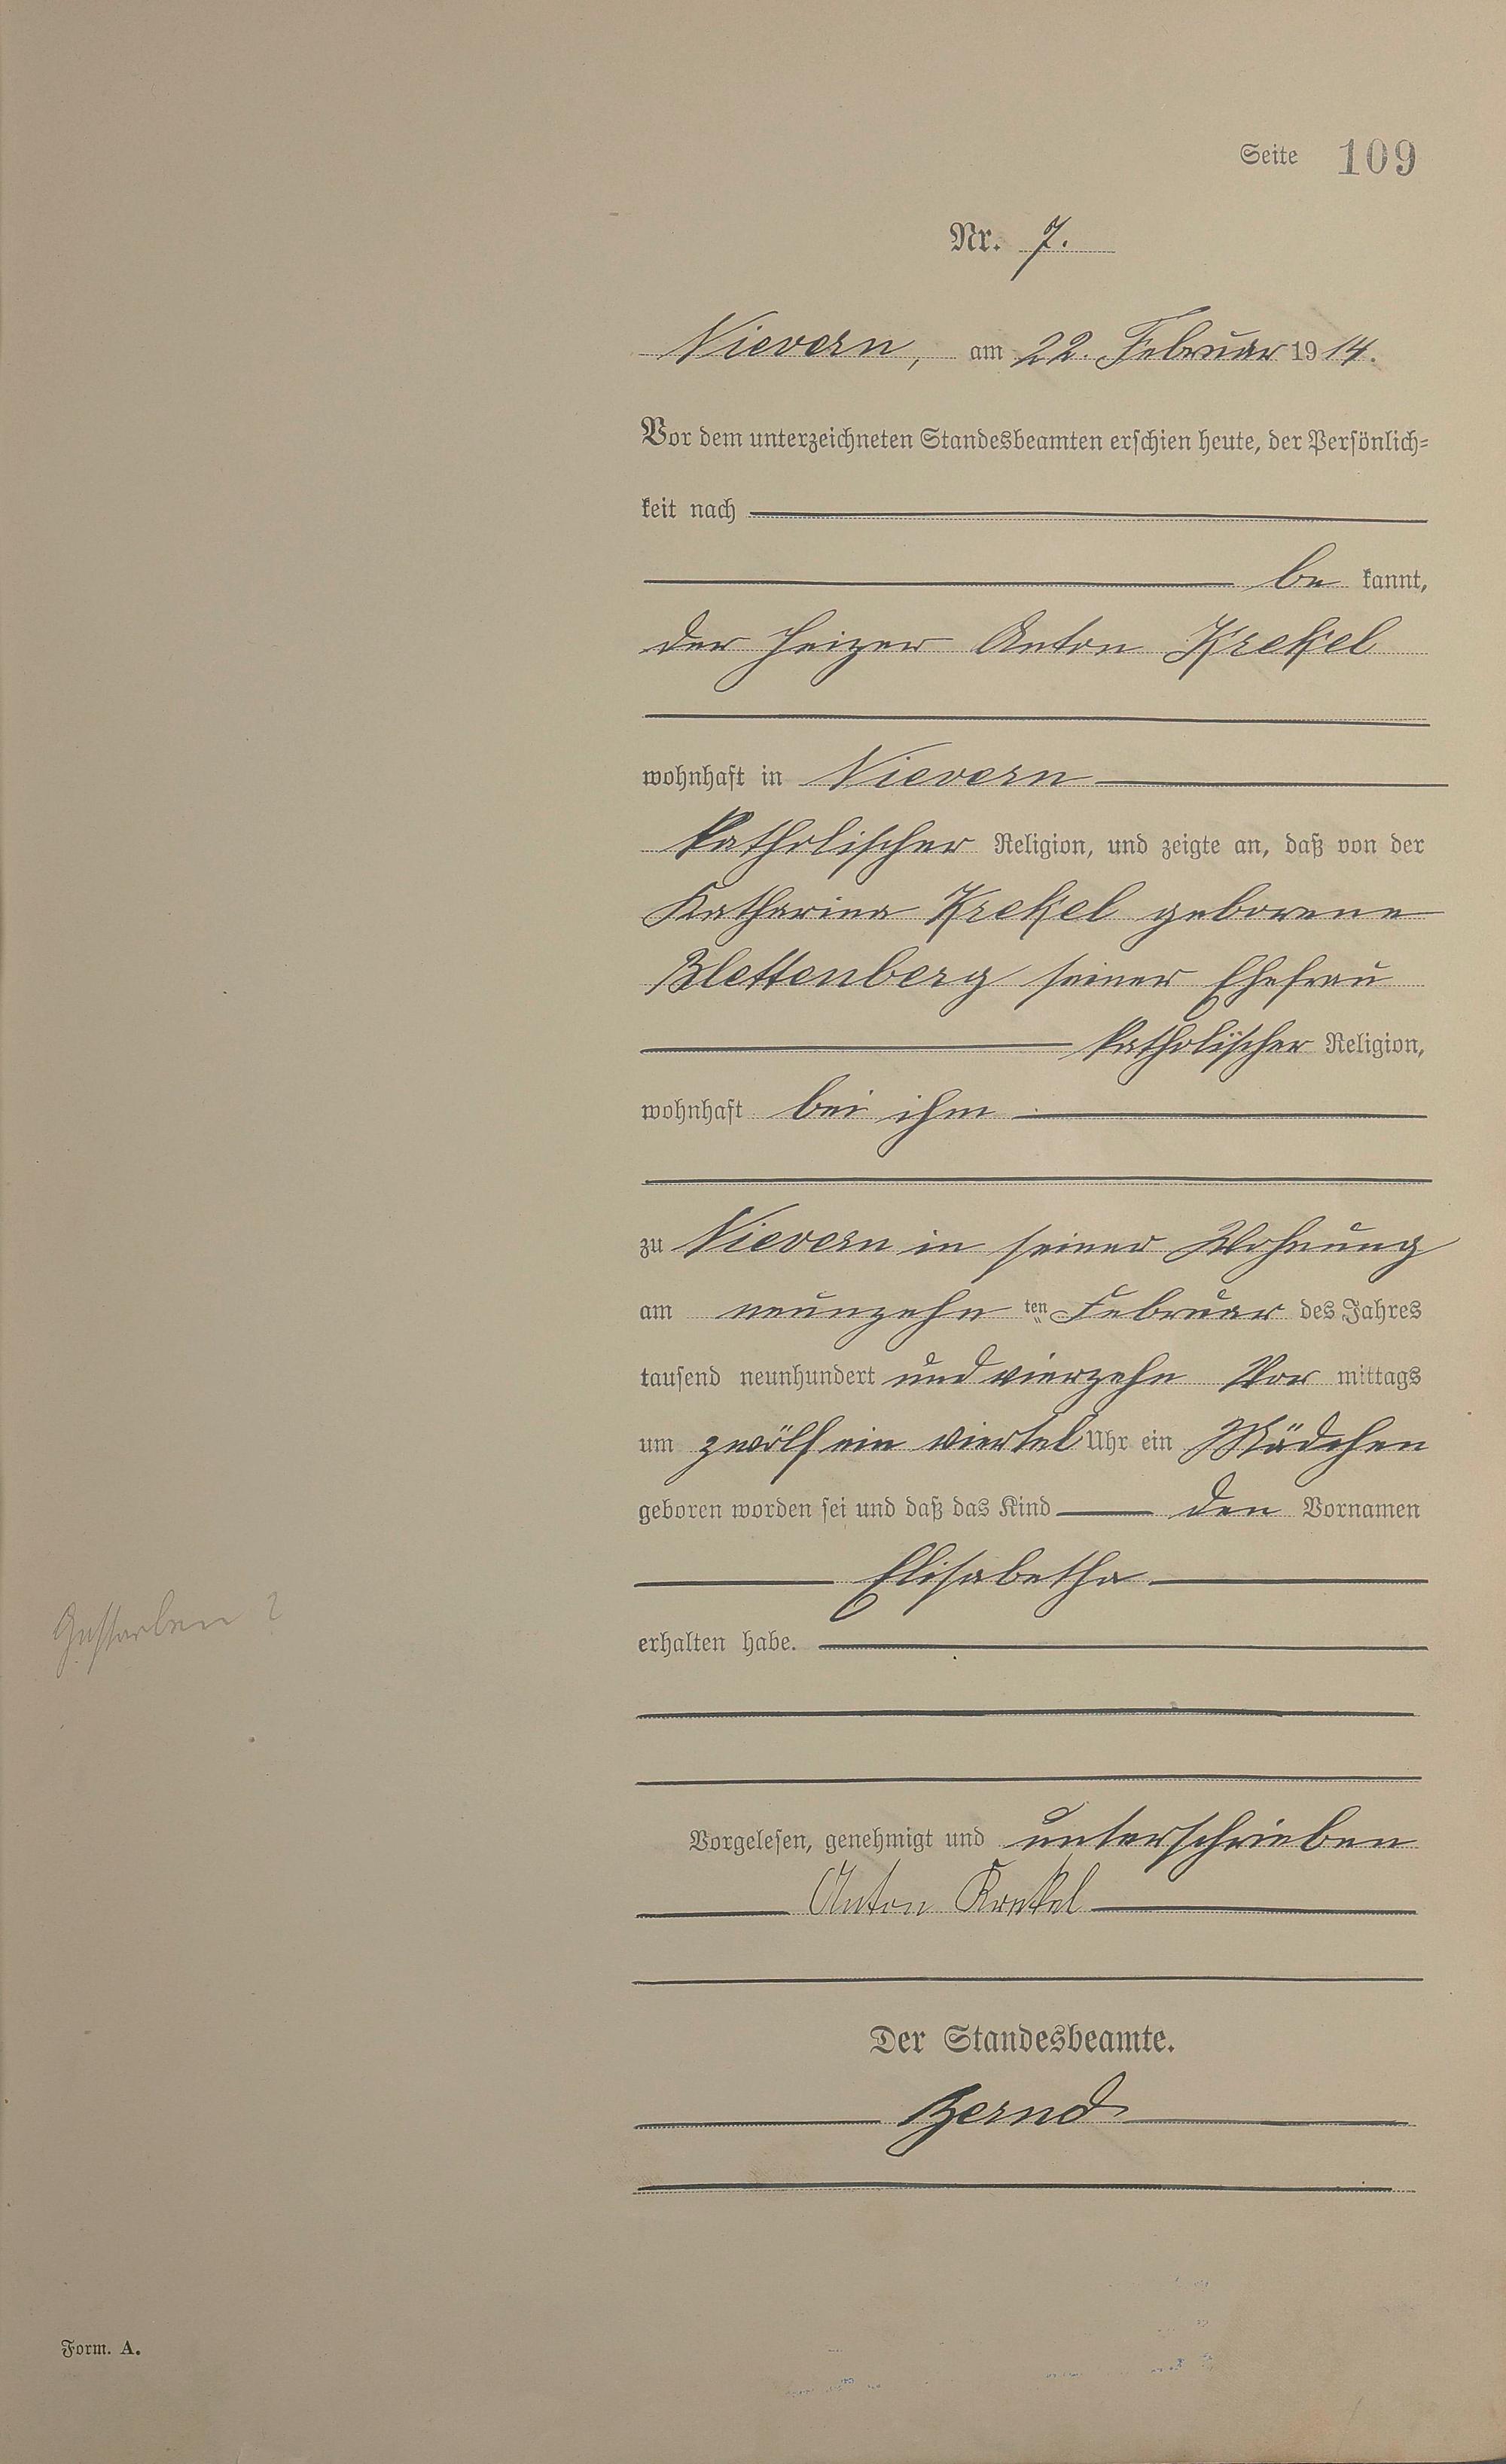 Seite 109
Nr. 7.
Nievern, am 22. Februar 1914.
Vor dem unterzeichneten Standesbeamten erschien heute, der Persönlich-
keit nach
be kannt,
der Heizer Anton Krekel
wohnhaft in Nievern
katholischer Religion, und zeigte an, daß von der
Katharina Krekel geborene
Blettenberg seiner Ehefrau
katholischer Religion,
wohnhaft bei ihm
zu Nievern in seiner Wohnung
am neunzehn ten Februar des Jahres
tausend neunhundert und vierzehn Vor mittags
um zwölf ein viertel Uhr ein Mädchen
geboren worden sei und daß das Kind den Vornamen
Elisabetha
Gestorben ?
erhalten habe.
Vorgelesen, genehmigt und unterschrieben
Anton Krekel
Der Standesbeamte.
Bernd
Form. A.